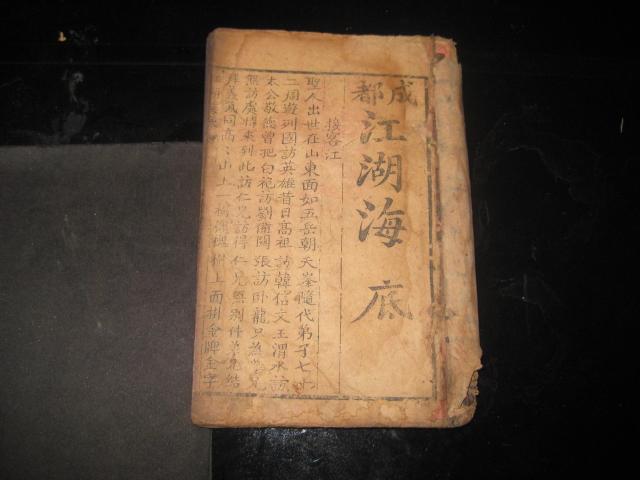 成都
江湖海底
接客江
聖人出世在山東面如五岳朝天峯隨代弟子七十
二周遊列國訪英雄昔日高祖訪韓信文王渭水訪
太公敬德曾把白袍訪劉備關張訪卧龍只為弟兄
無訪處將來到此訪仁兄訪得仁兄無別件弟兄結
義氣同高高山上一 樹上面掛金牌金字